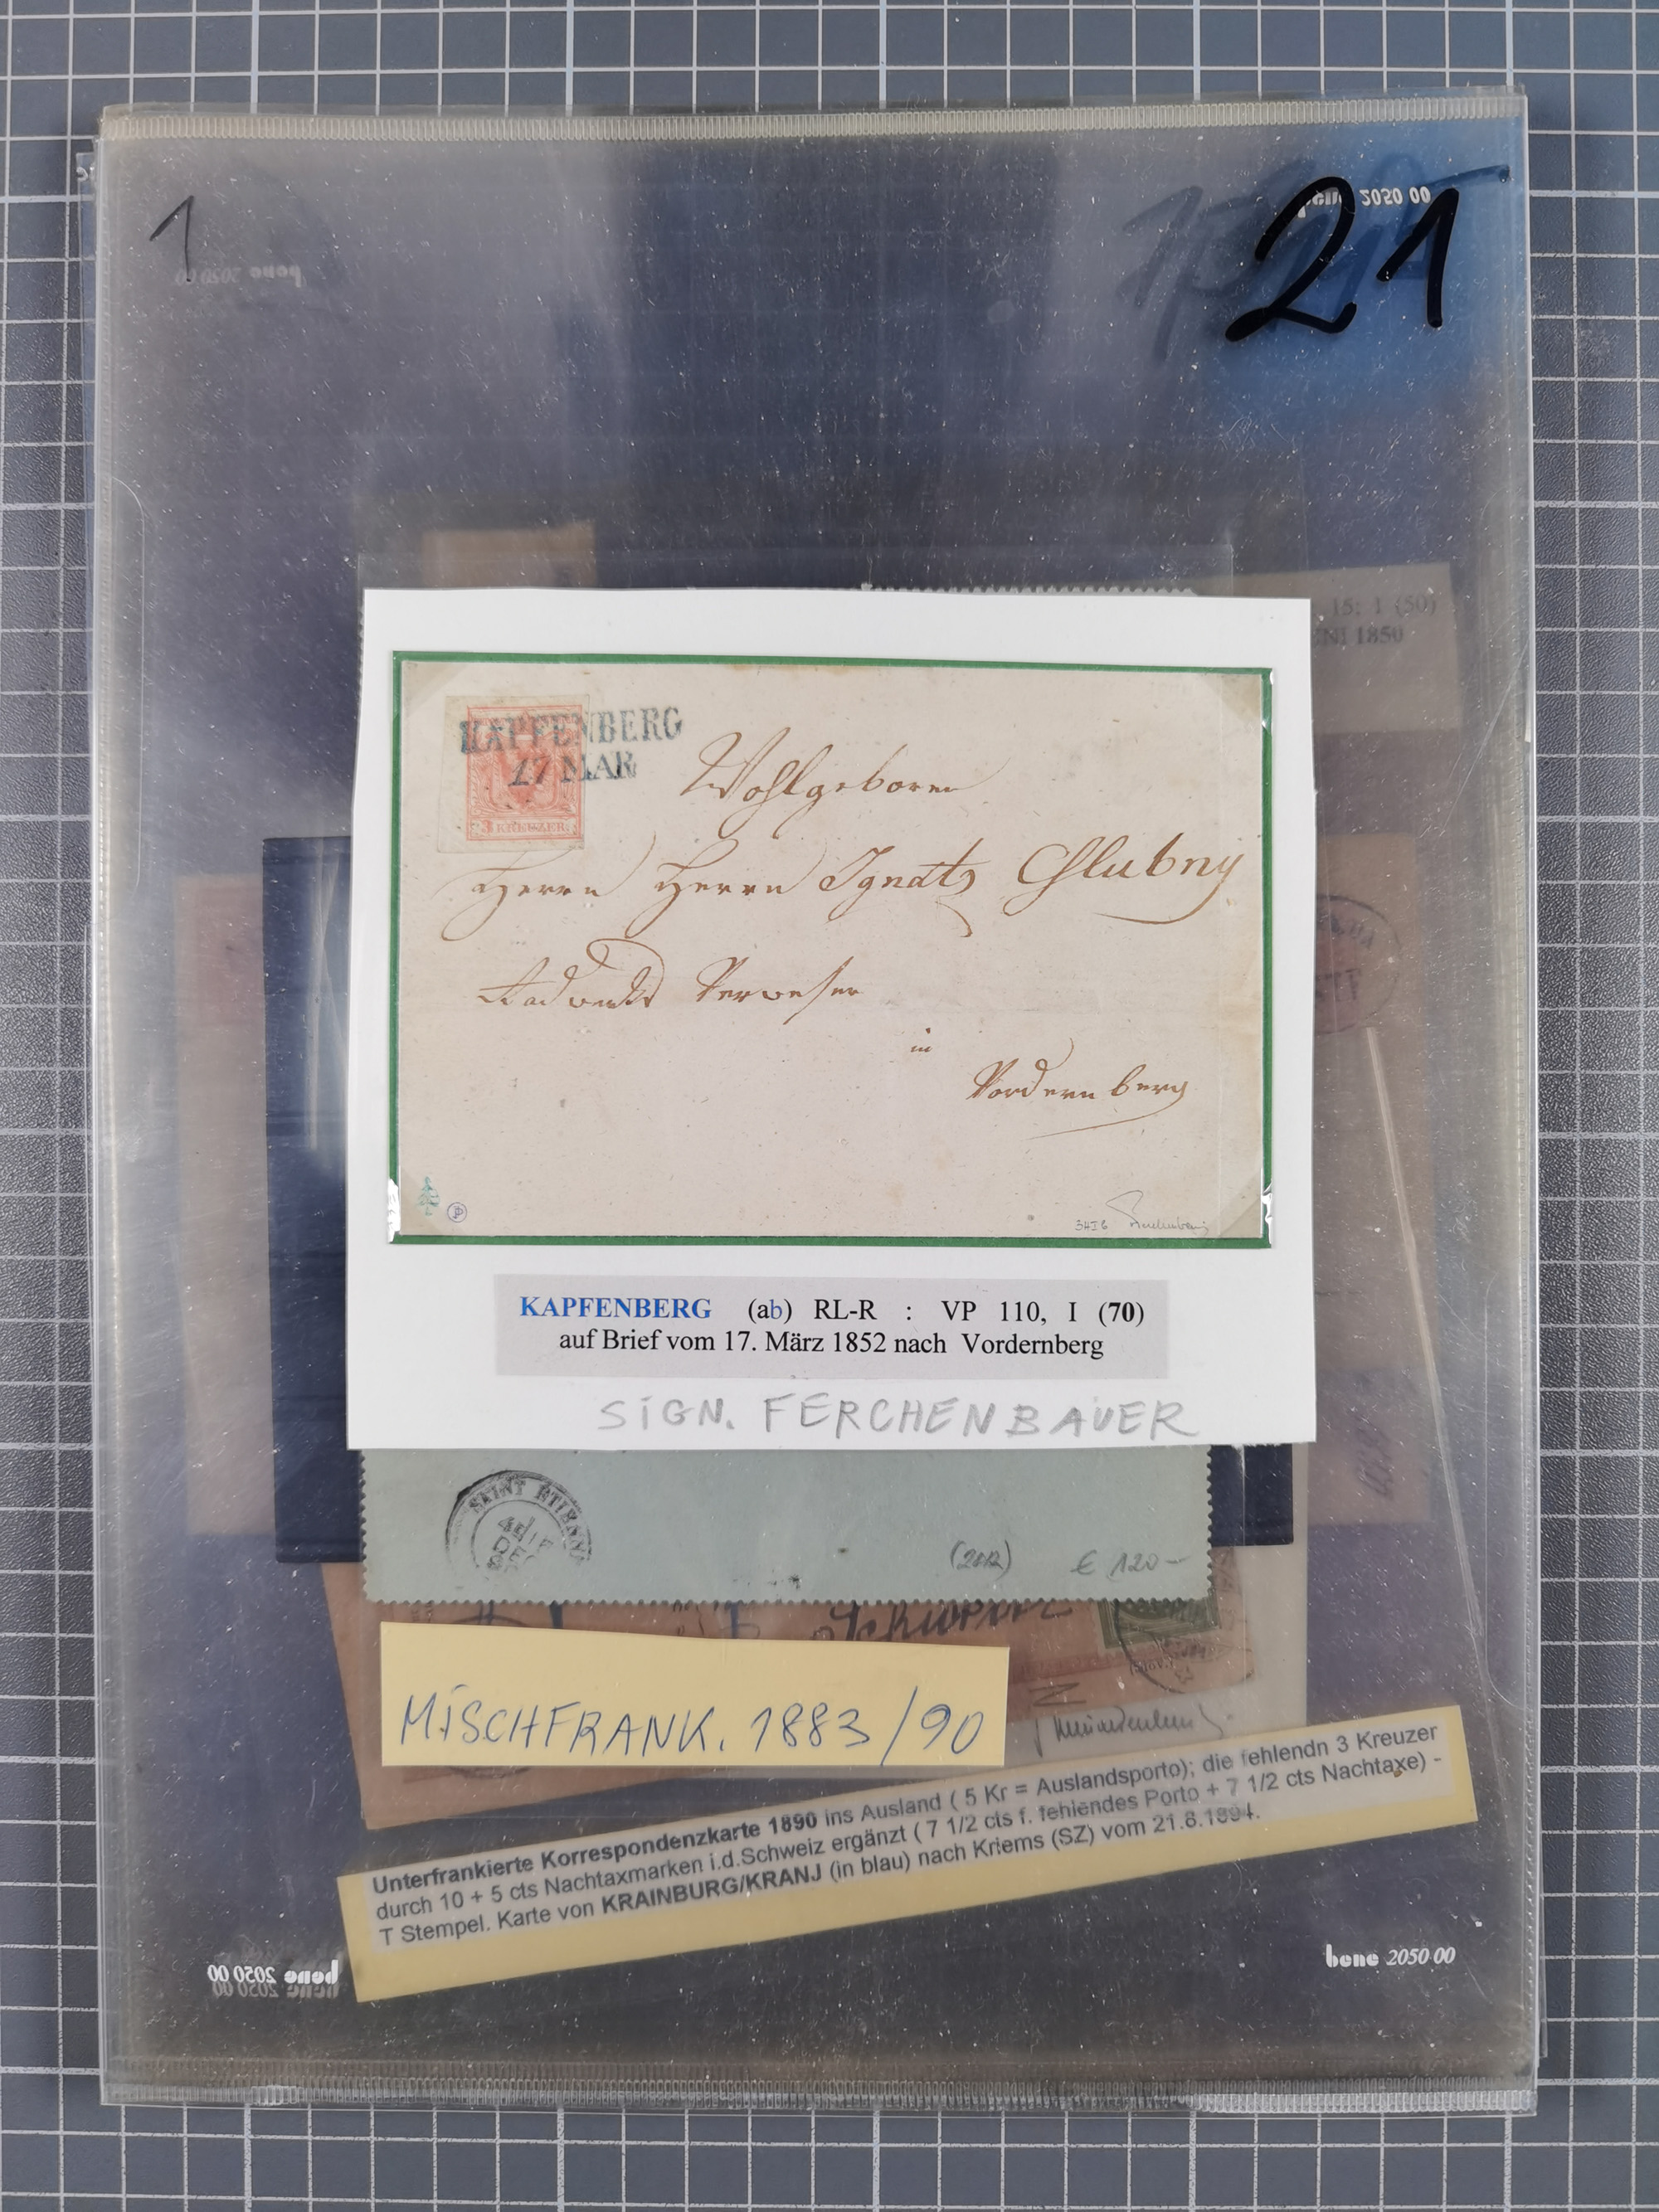 1
21
bene 2050 00
bene 2050 00
15: 1 (50)
1850
KAPFENBERG
17 MAR
3 KREUZER
Wohlgeboren
Herrn Herrn Ignatz Chlubny
Radwerks Verweser
in
Vordernberg
KAPFENBERG (ab) RL-R : VP 110, I (70)
auf Brief vom 17. März 1852 nach Vordernberg
SIGN. FERCHENBAUER
SAINT ETIENNE
DEC
(2012) € 120-
MISCHFRANK. 1883/90
Unterfrankierte Korrespondenzkarte 1890 ins Ausland ( 5 Kr = Auslandsporto); die fehlendn 3 Kreuzer
durch 10 + 5 cts Nachtaxmarken i.d.Schweiz ergänzt ( 7 1/2 cts f. fehlendes Porto + 7 1/2 cts Nachtaxe) -
T Stempel. Karte von KRAINBURG/KRANJ (in blau) nach Kriems (SZ) vom 21.8.1894.
bene 2050 00
bene 2050 00
bene 2050 00